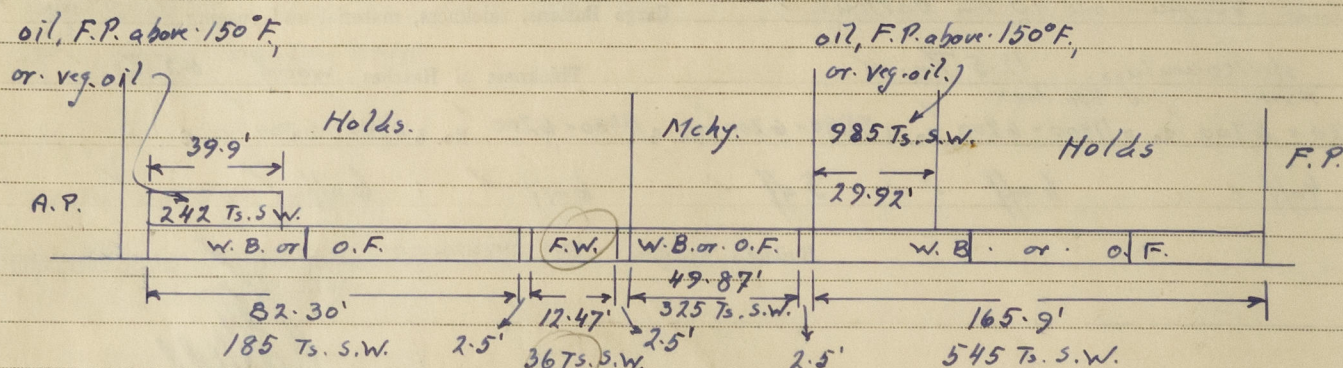 oil, F.P. above 150°F.,
or veg. oil
oil, F.P. above 150°F.,
or veg. oil.
Holds.
Mchy.
985 Ts. S.W.
Holds
F.P.
39.9'
29.92'
A.P.
242 Ts. S.W.
W.B. or O.F.
F.W.
W.B. or O.F.
W.B. or O.F.
82.30'
185 Ts. S.W.
2.5'
12.47'
36 Ts. S.W.
2.5'
49.87'
325 Ts. S.W.
2.5'
165.9'
545 Ts. S.W.